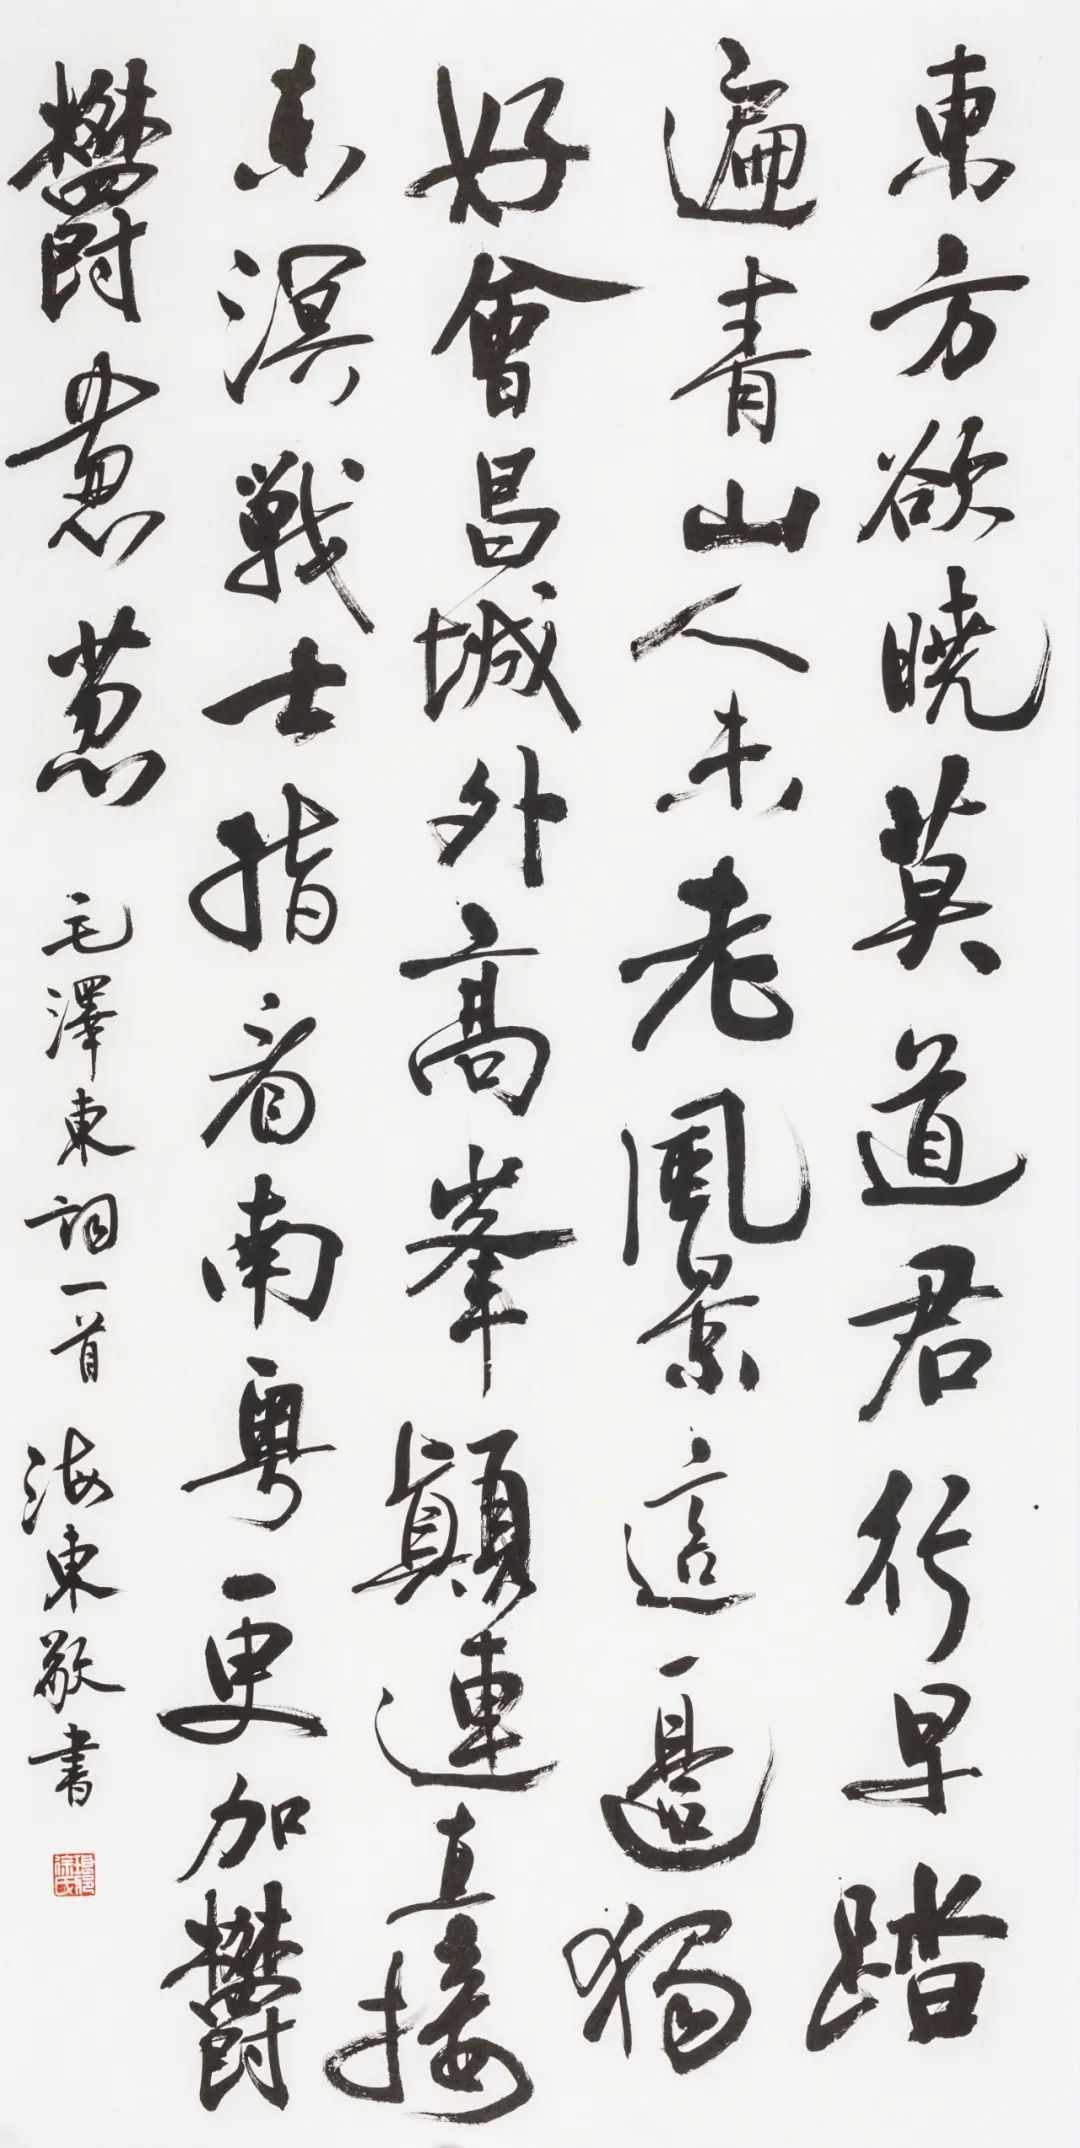 東方欲曉莫道君行早踏
遍青山人未老風景這邊獨
好會昌城外高峯顛連直接
東溟戰士指看南粵更加鬱
鬱蔥葱 毛澤東詞一首 海東敬書